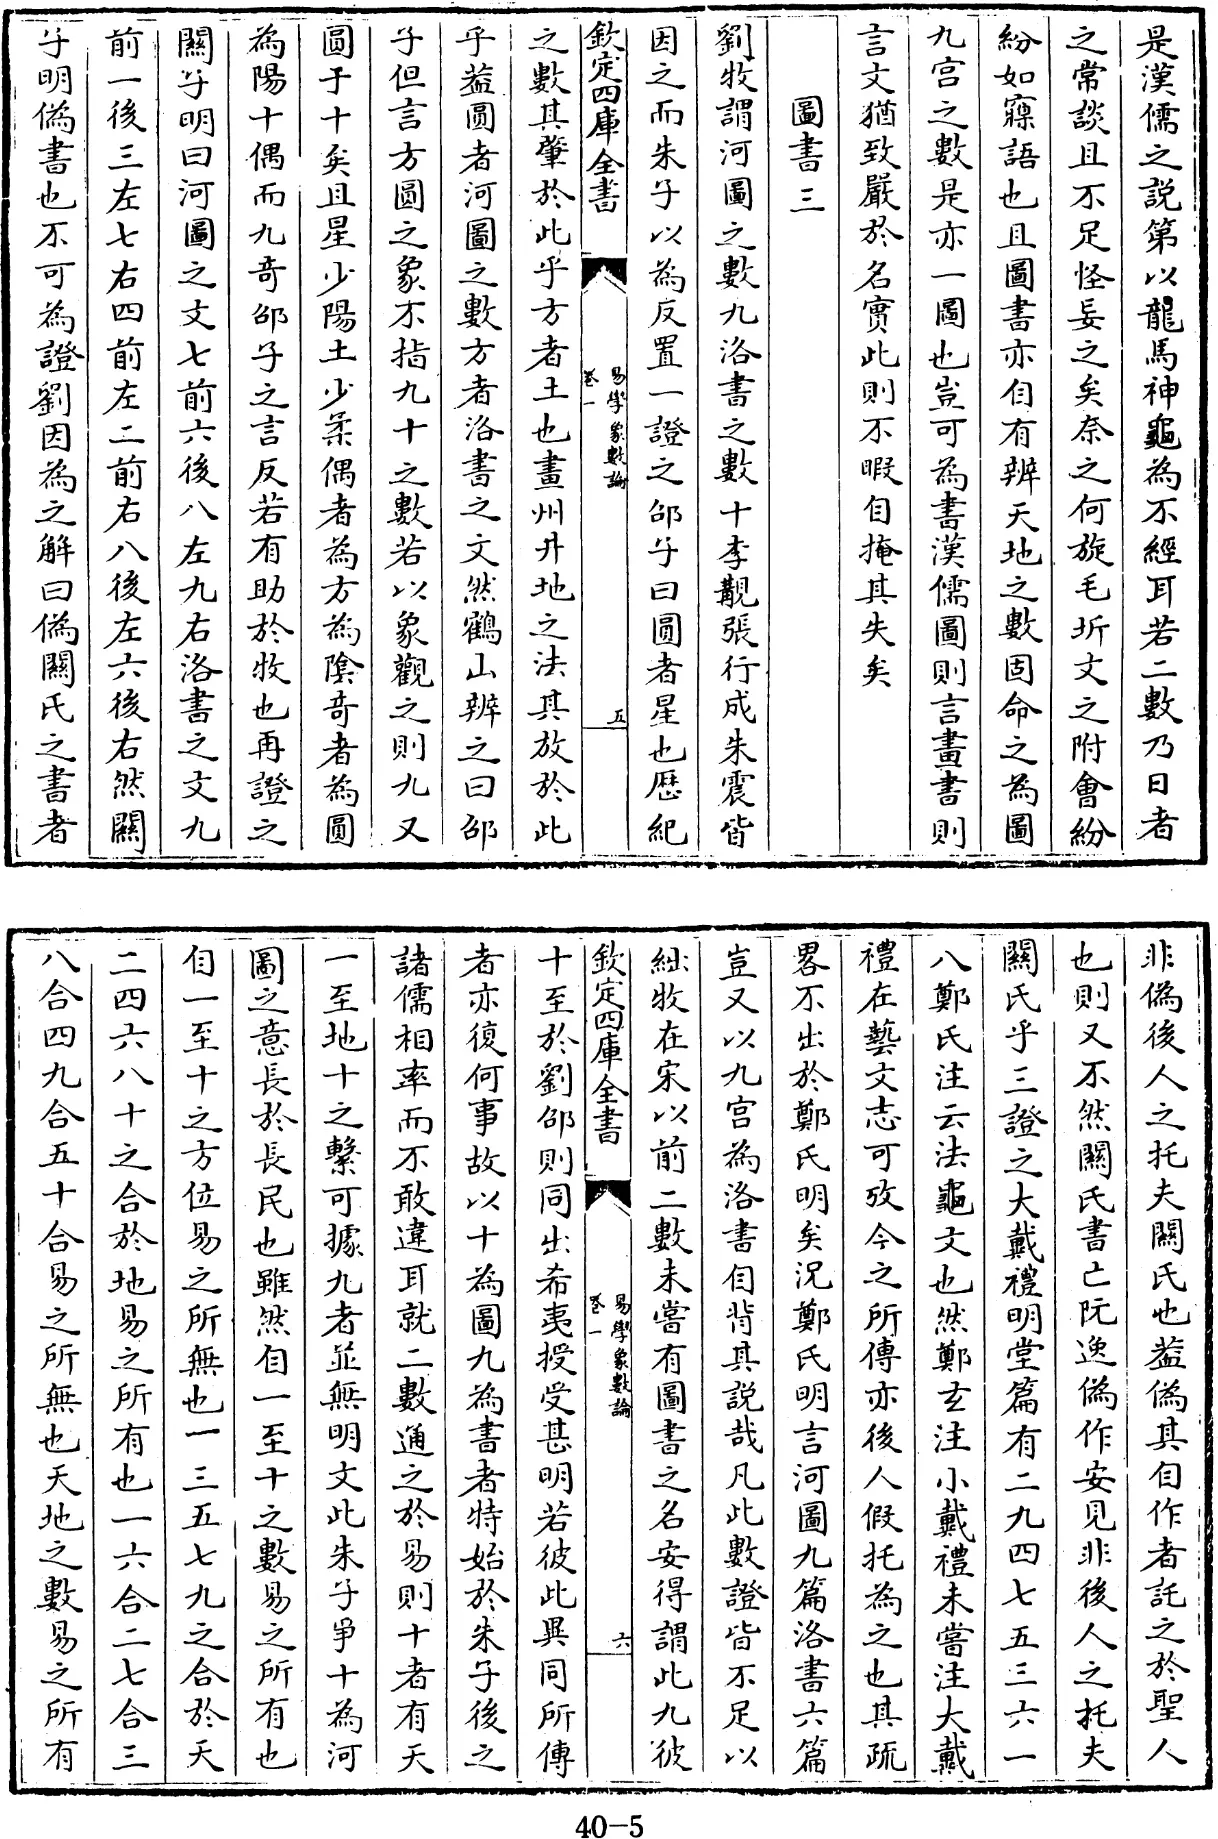 是漢儒之説第以龍馬神龜為不經耳若二數乃日者
之常談且不足怪妄之矣奈之何旋毛圻文之附會紛
紛如寱語也且圖書亦自有辨天地之數固命之為圖
九宫之數是亦一圖也豈可為書漢儒圖則言畫書則
言文猶致嚴於名實此則不暇自掩其失矣
圖書三
劉牧謂河圖之數九洛書之數十李覯張行成朱震皆
因之而朱子以為反置一證之邵子曰圓者星也厯紀
欽定四庫全書
易學象數論
卷一
五
之數其肇於此乎方者土也畫州井地之法其放於此
乎葢圓者河圖之數方者洛書之文然鶴山辨之曰邵
子但言方圓之象不指九十之數若以象觀之則九又
圓于十矣且星少陽土少柔偶者為方為陰奇者為圓
為陽十偶而九奇邵子之言反若有助於牧也再證之
關子明曰河圖之文七前六後八左九右洛書之文九
前一後三左七右四前左二前右八後左六後右然關
子明偽書也不可為證劉因為之解曰偽關氏之書者
非偽後人之托夫關氏也葢偽其自作者託之於聖人
也則又不然關氏書亡阮逸偽作安見非後人之托夫
關氏乎三證之大戴禮明堂篇有二九四七五三六一
八鄭氏注云法龜文也然鄭玄注小戴禮未嘗注大戴
禮在藝文志可攷今之所傳亦後人假托為之也其疏
畧不出於鄭氏明矣況鄭氏明言河圖九篇洛書六篇
豈又以九宫為洛書自背其説哉凡此數證皆不足以
絀牧在宋以前二數未嘗有圖書之名安得謂此九彼
欽定四庫全書
易學象數論
卷一
六
十至於劉邵則同出希夷授受甚明若彼此異同所傳
者亦復何事故以十為圖九為書者特始於朱子後之
諸儒相率而不敢違耳就二數通之於易則十者有天
一至地十之繫可據九者並無明文此朱子爭十為河
圖之意長於長民也雖然自一至十之數易之所有也
自一至十之方位易之所無也一三五七九之合於天
二四六八十之合於地易之所有也一六合二七合三
八合四九合五十合易之所無也天地之數易之所有
40-5